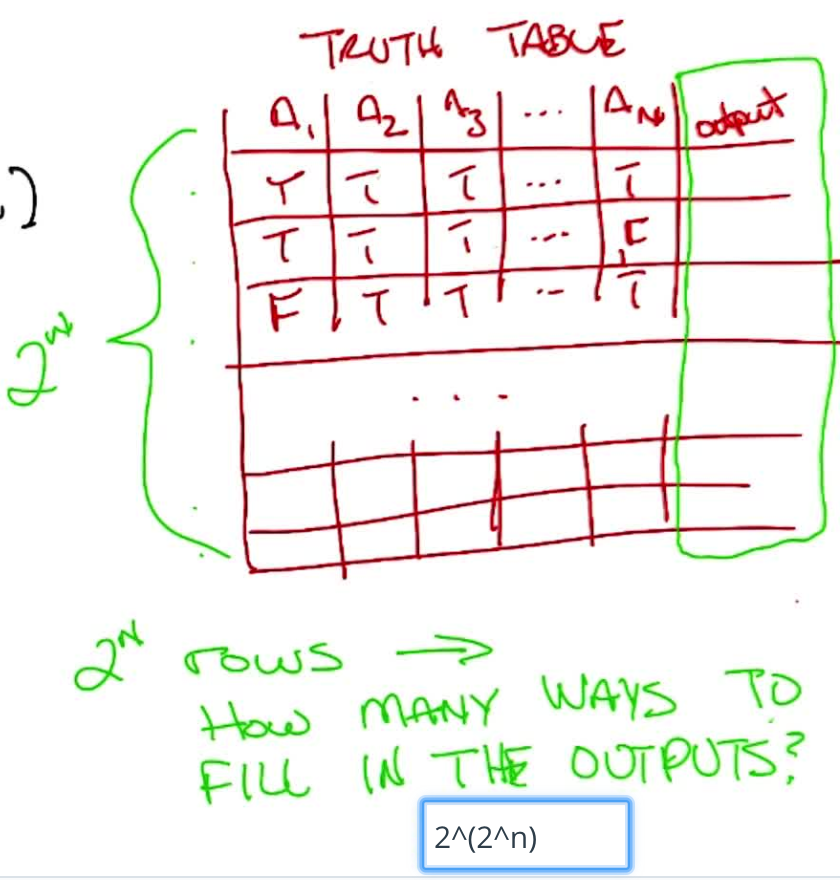 TRUTH TABLE
A₁ A₂ A₃ ... A_N output
T T T ... T
T T T ... F
F T T ... T
. . .
.)
2^N
2^N rows →
HOW MANY WAYS TO
FILL IN THE OUTPUTS?
2^(2^n)